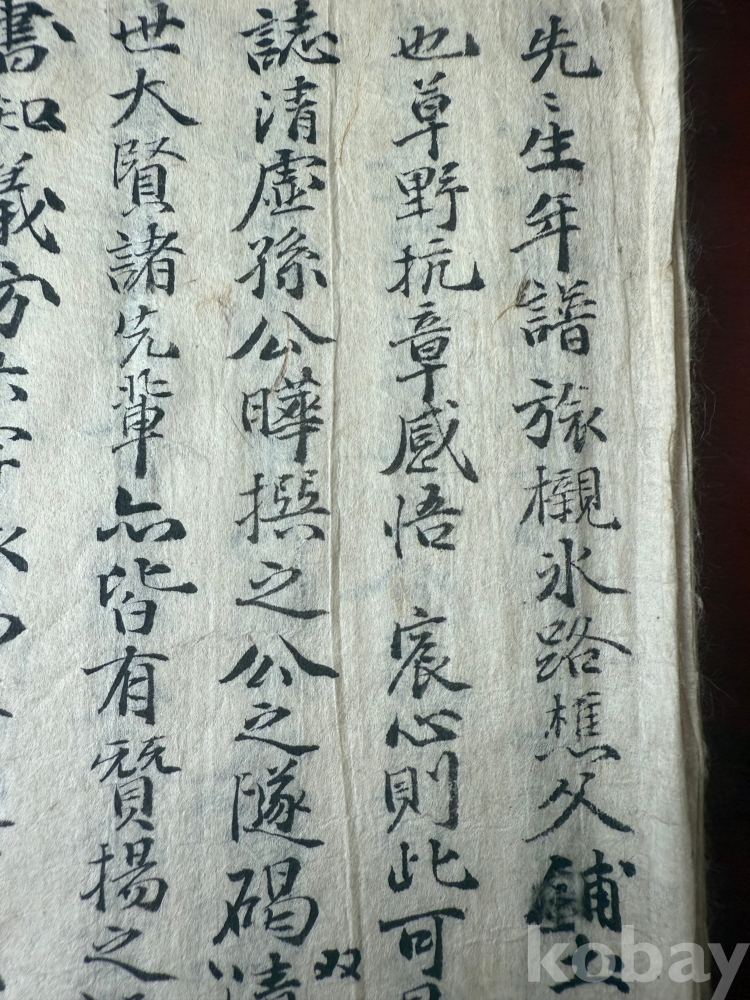 先〻生年譜旅櫬氷路樵父鋪土
也草野抗章感悟 宸心則此可
誌清虛孫公曄撰之公之隧碣
双
世大賢諸先輩亦皆有贊揚之
書知義方六字
kobay